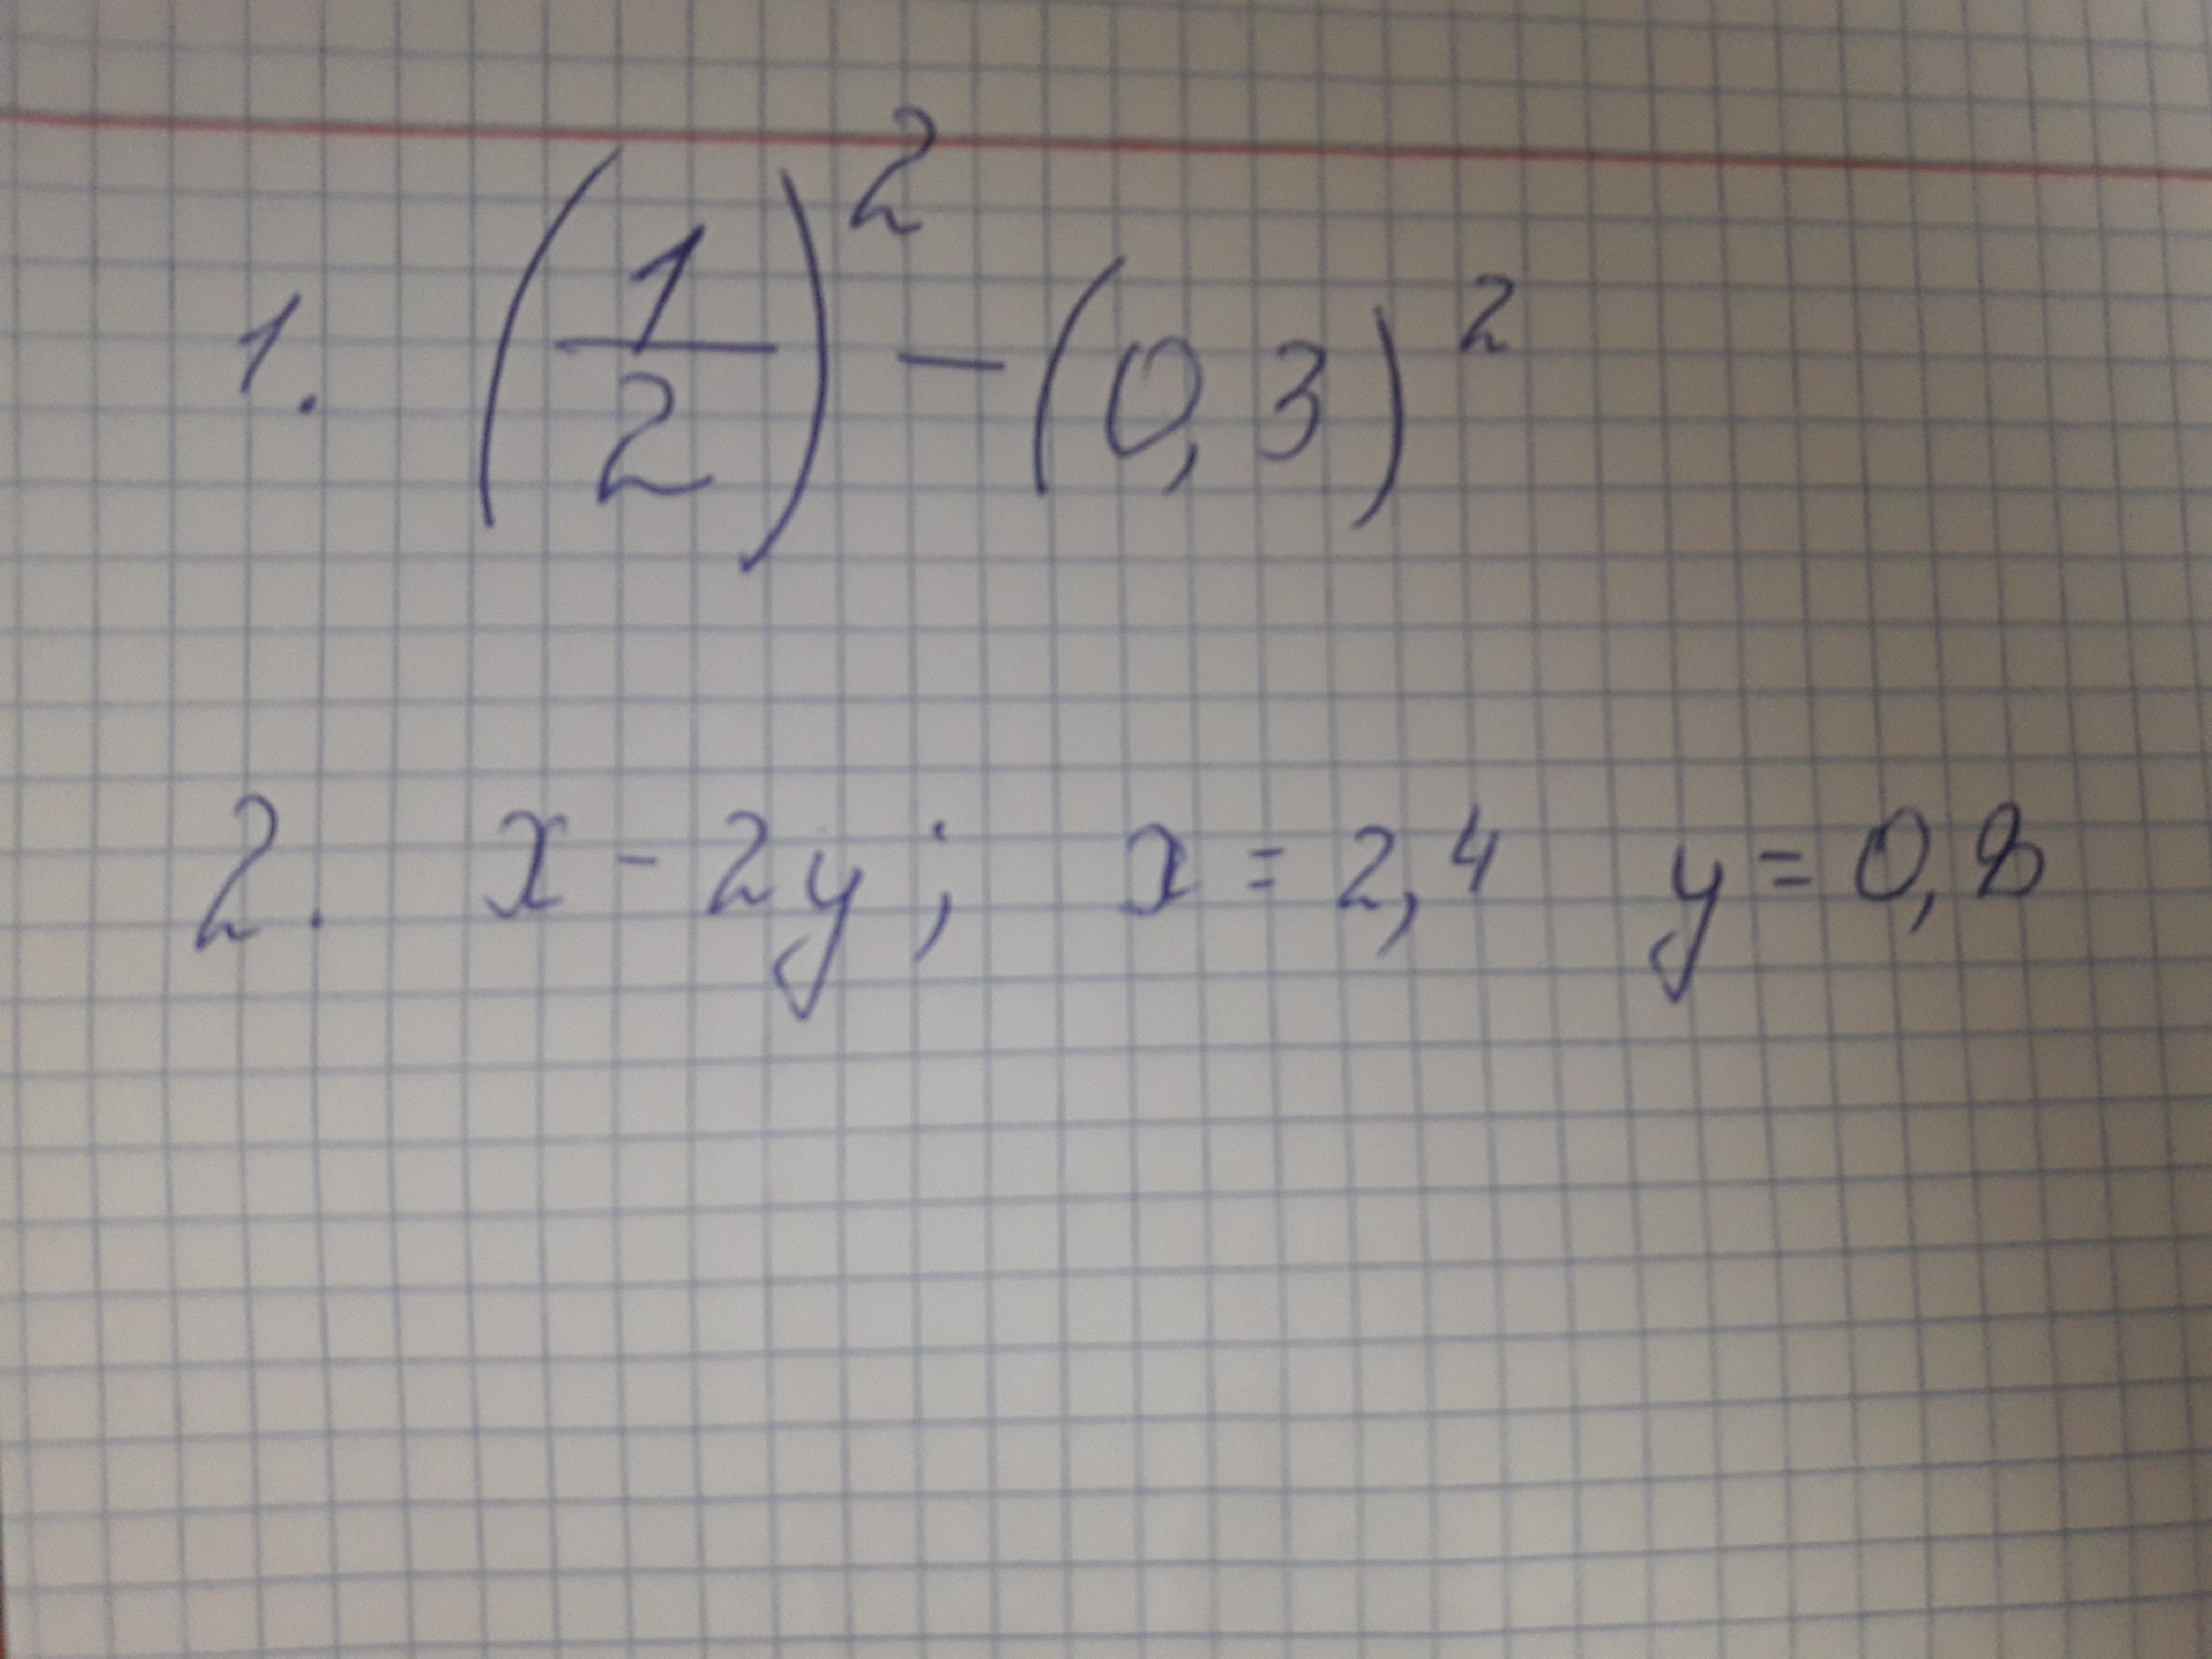 1. (1/2)² - (0,3)²
2. x - 2y; x = 2,4 y = 0,8